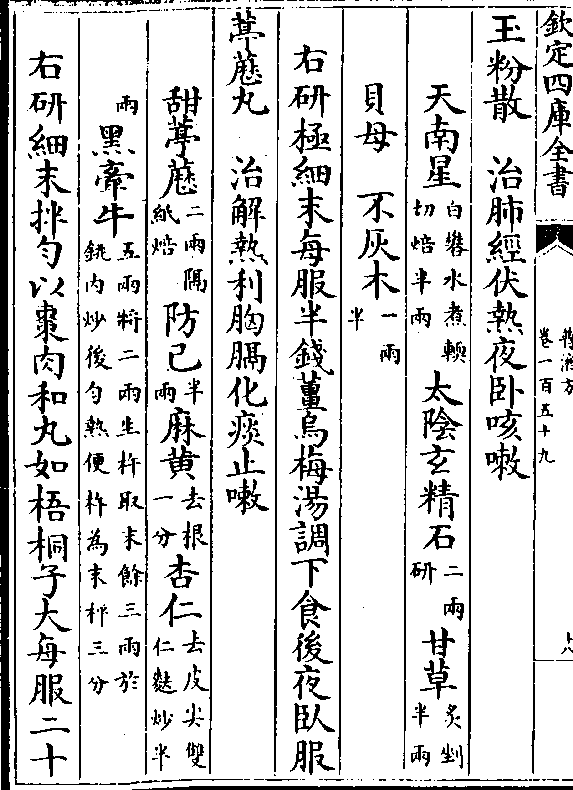 欽定四庫全書
普濟方
卷一百五十九
玉粉散　治肺經伏熱夜卧咳嗽
天南星白礬水煮輭切焙半兩　太陰玄精石二兩研　甘草炙剉半兩
貝母　不灰木一兩半
右研極細末每服半錢薑烏梅湯調下食後夜臥服
葶藶丸　治解熱利胸膈化痰止嗽
甜葶藶二兩隔紙焙　防己半兩　麻黄去根一分　杏仁去皮尖雙仁麩炒半
兩　黑牽牛五兩將二兩生杵取末餘三兩於銚内炒後勻熟便杵為末秤三分
右研細末拌勻以棗肉和丸如梧桐子大每服二十